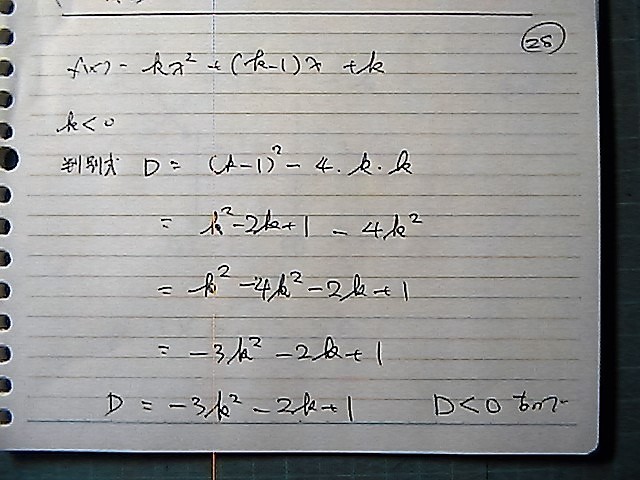 28
f(x) = kx² + (k-1)x + k
k<0
判別式 D = (k-1)² - 4・k・k
= k²-2k+1 - 4k²
= k² -4k² -2k+1
= -3k² -2k+1
D = -3k² -2k+1 D<0